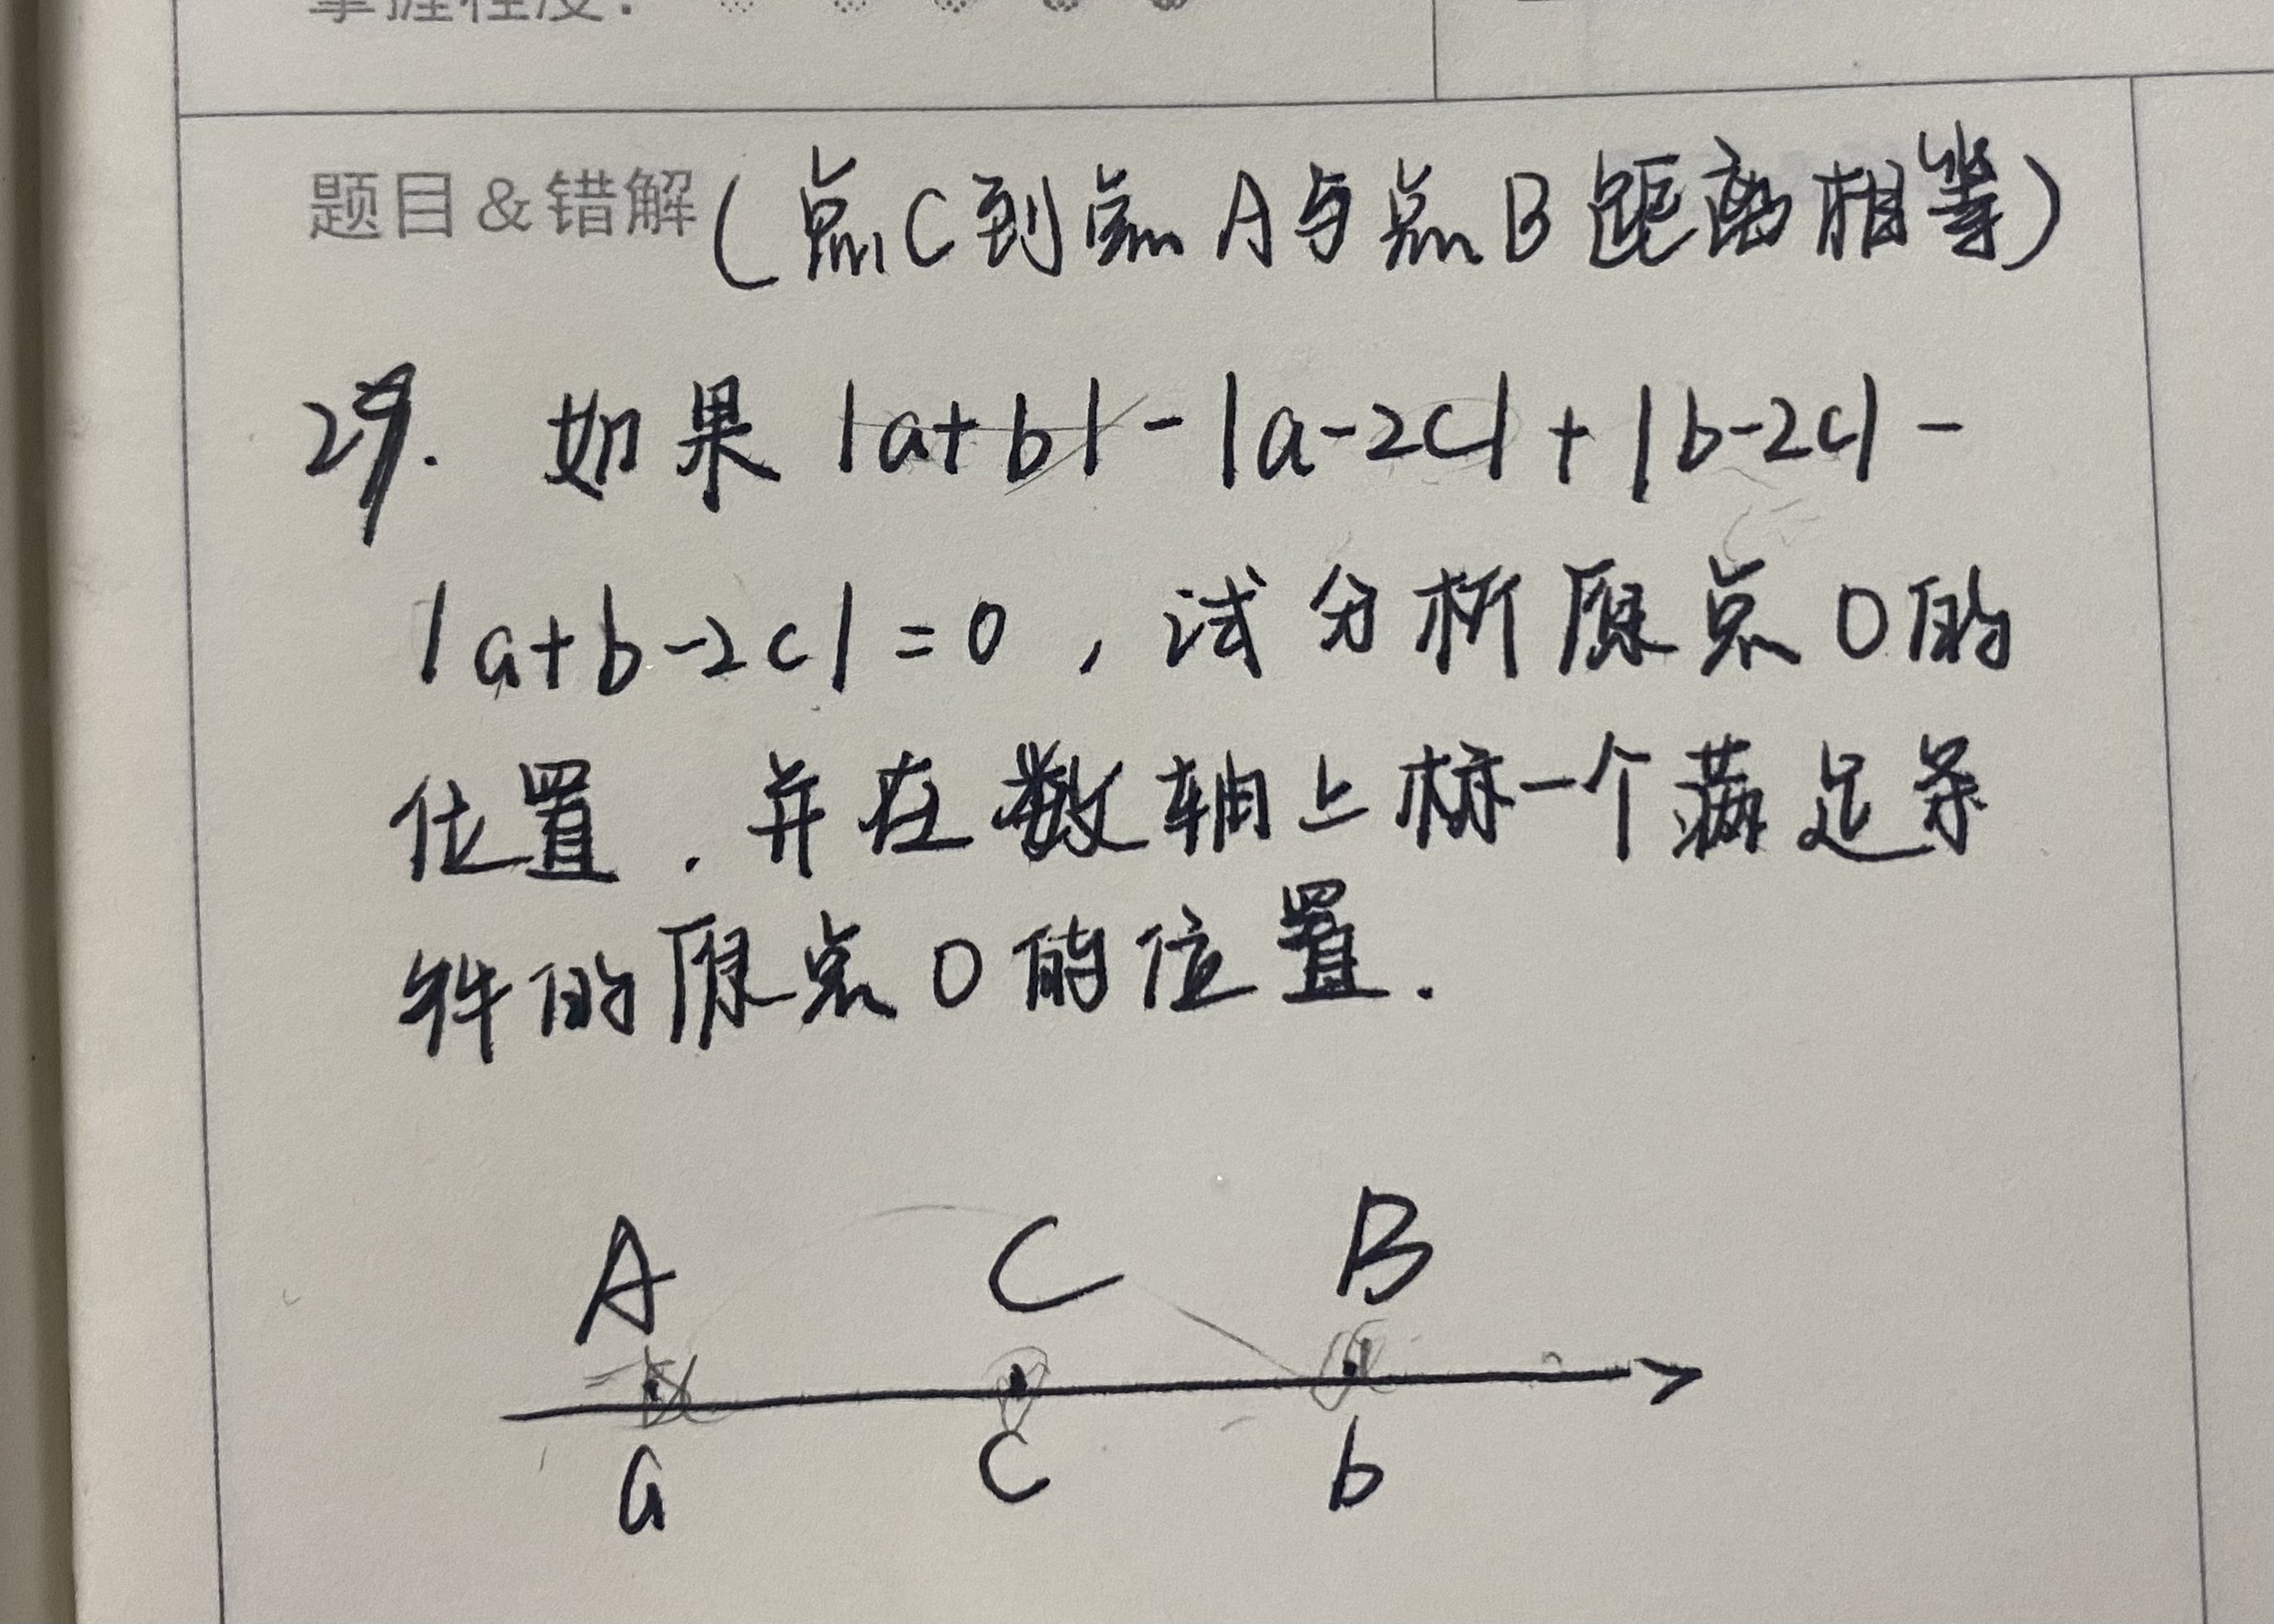 掌握程度：
题目&错解(点C到点A与点B距离相等)
29. 如果 |a+b|-|a-2c|+|b-2c|-
|a+b-2c|=0，试分析原点O的
位置.并在数轴上标一个满足条
件的原点O的位置.
A C B
a c b